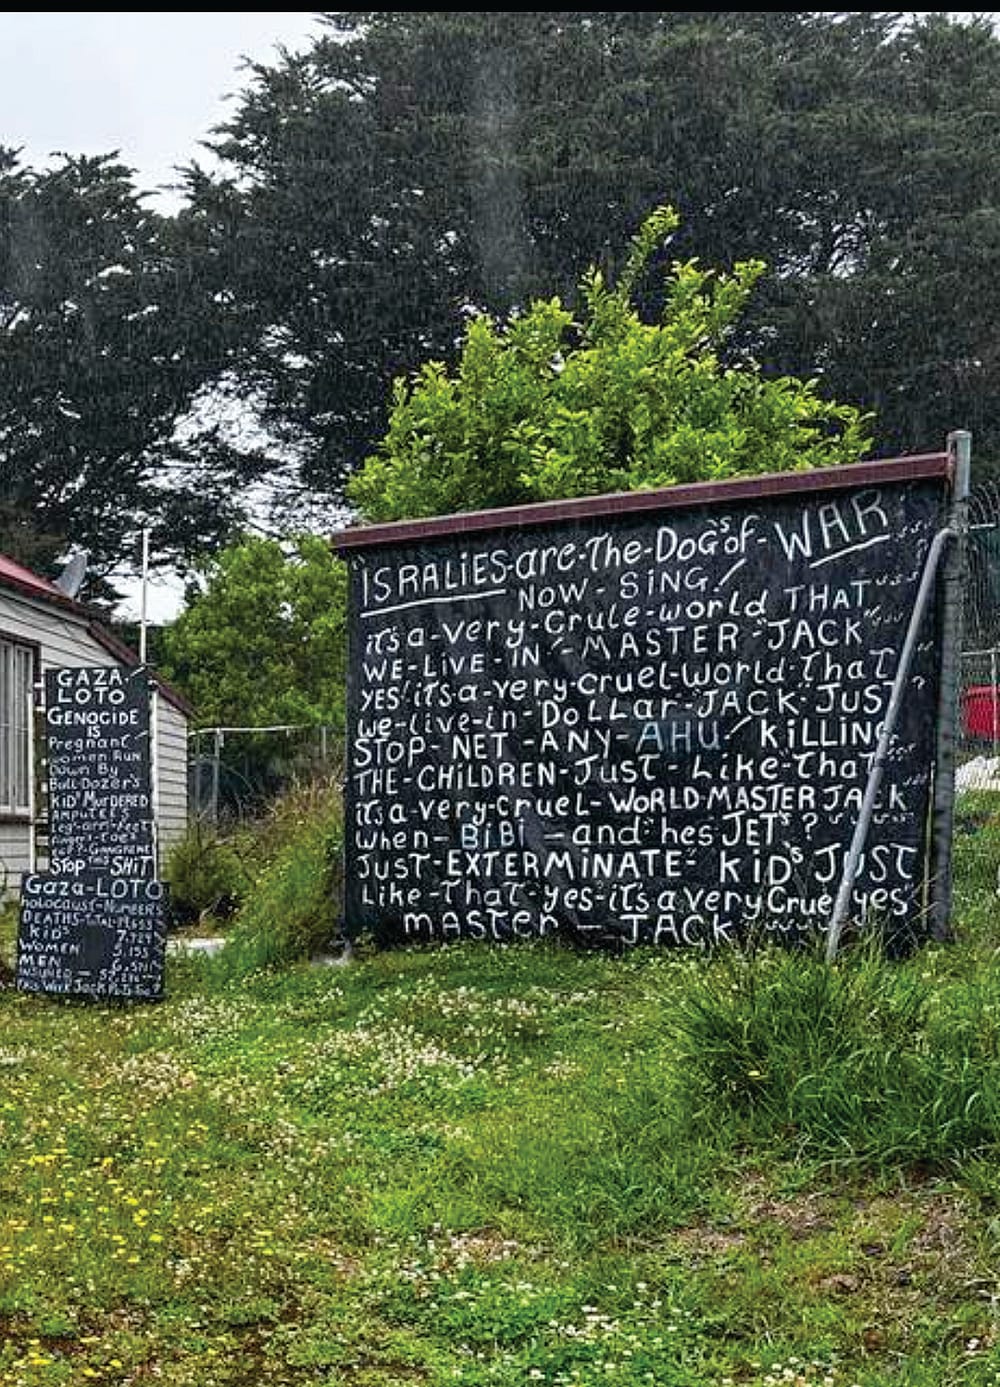 GAZA
LOTO
GENOCIDE
IS
Pregnant
women Run
Down By
BullDozer's
KiD' MURDERED
AMPUTEES
Leg-arm-feet
GANGRENE
STOP THIS SHiT
Gaza-LOTO
holocaust-NUMBERS
DEATHS-
KiD'S
WOMEN
MEN
"ISRALIES-are-The-DoG's of-WAR
NOW-SiNG!
it's a-very-Crule-world THAT
WE-LiVE-IN'-MASTER-"JACK"
YES' it's-a-very-cruel-world-ThaT
we-live-in-DoLLar-"JACK"-JUST
STOP-NET-ANY-AHU-KiLLiNG
THE-CHiLDREN-JusT-Like-ThaT
it's a-very-cruel-WORLD-MASTER JACK
when-BiBi-and-he's JET'S?
JUST-EXTERMiNATE" KiD'S JUST
Like-ThaT-yes-it's a very Cruel yes
master-JACK